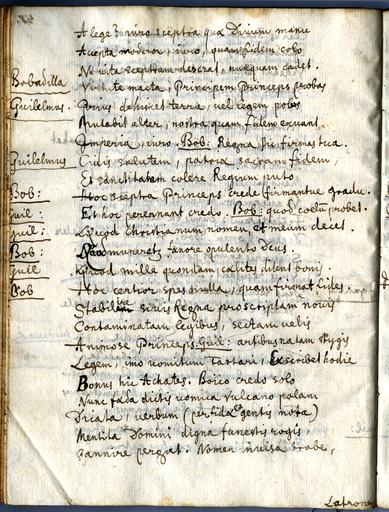 A lege? iuro sceptra qua Divum manu
Accepta moderor, iuro, quam fidem colo
Ne vita sceptrum deserat, nunquam cadet.
Bobadilla Virtute macta, Princeps probos
Guilelmus. Prius dehiscet terra, vel legem polus
Mutabit alter, nostra quam fidem exuant
Imperia, iuro. Bob: Regna sic firmas tua.
Guilelmus Civis salutem, patriae sacram fidem,
Et sanctitatem colere Regium puto
Bob: Hoc sceptra Princeps crede firmantur gradu.
Guil: Et hoc perennant credo. Bob: quod coelu probet.
Guil: Quod Christianum nomen, et meum decet.
Bob: Quod muneret favore opulento Deus.
Guil Quod mille quondam caelites ditent bonis
Bob Hoc certior spes nulla, quam firmat fides.
Stabilire si vis Regna proscriptam novis
Contaminatam legibus, sectam velis
Animose Princeps. Guil: artibus natam Stygis
Legem, imo vomitum Tartari, Exscribet hodie
Bonus hic Achates. Boico credo solo
Nunc falsa dictis vomica Vulcano palam
Dicata, verbum (perfidae gentis nota)
Mentita Domini digna funestis rogis
Gannire pergat. Nomen invisa trabe,
Latrone